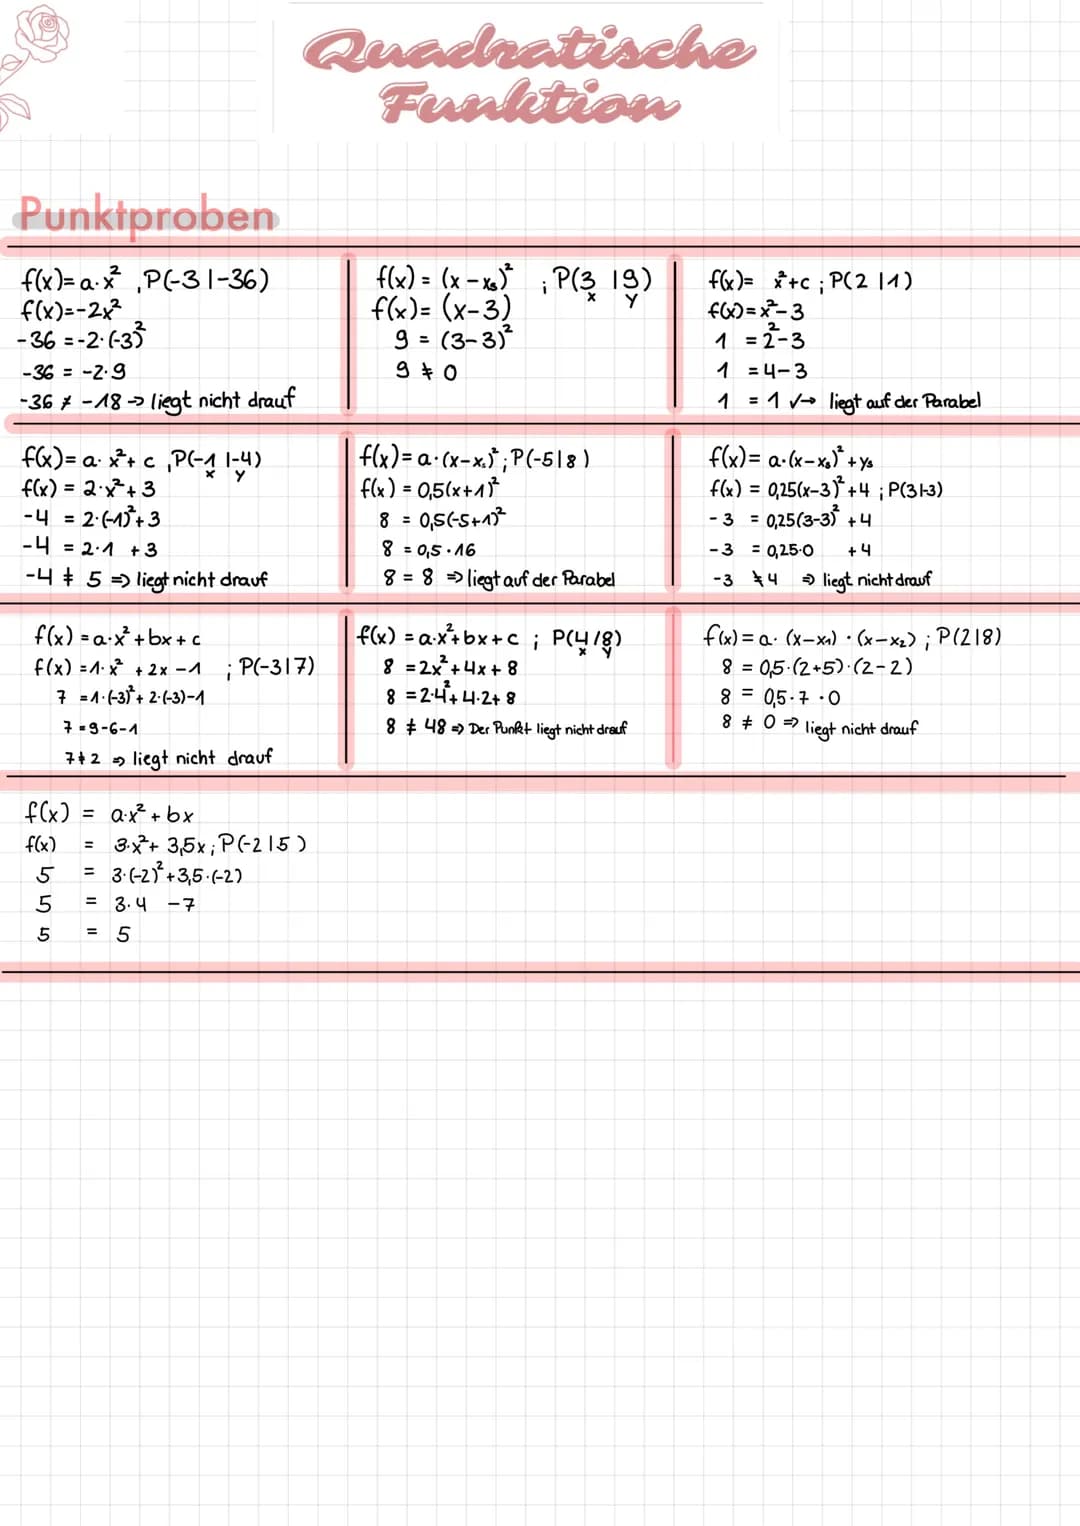 Quadratische
Funktion
Punktproben
f(x)= a·x² , P(-3 |-36)
f(x)=-2x²
-36 =-2·(-3)²
-36 = -2·9
-36 ≠ -18 → liegt nicht drauf
f(x) = (x-xₛ)² ; P(3 |9)
x y
f(x)= (x-3)
9 = (3-3)²
9 ≠ 0
f(x)= x²+c ; P(2 |1)
f(x)=x²-3
1 =2²-3
1 =4-3
1 = 1 ✓→ liegt auf der Parabel
f(x)= a· x²+ c , P(-1 |-4)
x y
f(x) = 2·x²+3
-4 = 2·(-1)²+3
-4 = 2·1 +3
-4 ≠ 5 ⇒ liegt nicht drauf
f(x)= a·(x-xₛ)² ; P(-5|8)
f(x) = 0,5(x+1)²
8 = 0,5(-5+1)²
8 = 0,5·16
8 = 8 ⇒ liegt auf der Parabel
f(x)= a·(x-xₛ)² + yₛ
f(x) = 0,25(x-3)²+4 ; P(3|-3)
-3 = 0,25(3-3)² +4
-3 = 0,25·0 +4
-3 ≠ 4 ⇒ liegt nicht drauf
f(x) = a·x² + bx + c
f(x) = 1·x² + 2x -1 ; P(-3|7)
7 = 1·(-3)² + 2·(-3)-1
7 = 9-6-1
7 ≠ 2 ⇒ liegt nicht drauf
f(x) = a·x²+bx+c ; P(4/8)
x y
8 =2x²+4x+8
8 =2·4²+4·2+8
8 ≠ 48 ⇒ Der Punkt liegt nicht drauf
f(x) = a· (x-x₁) · (x-x₂) ; P(2|8)
8 = 0,5·(2+5)·(2-2)
8 = 0,5·7·0
8 ≠ 0 ⇒ liegt nicht drauf
f(x) = a·x² + bx
f(x) = 3·x²+ 3,5x ; P(-2|5)
5 = 3·(-2)²+3,5·(-2)
5 = 3·4 -7
5 = 5